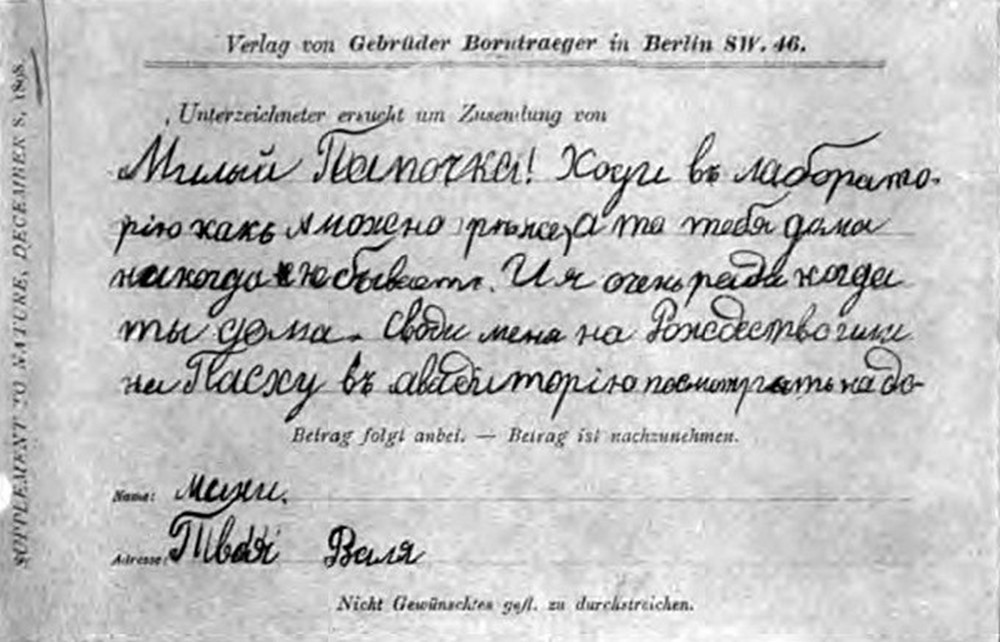 SUPPLEMENT TO NATURE, DECEMBER 8, 1898.
Verlag von Gebrüder Borntraeger in Berlin SW. 46.
Unterzeichneter ersucht um Zusendung von
Милый Папочка! Ходи въ лаборато-
рію какъ можно рѣже, а то тебя дома
никогда не бываетъ. И я очень рада когда
ты дома. Своди меня на Рождество или
на Пасху въ авадиторію посмотрѣть на до-
Betrag folgt anbei. — Betrag ist nachzunehmen.
Name:
Adresse: Твоя Валя
Nicht Gewünschtes gefl. zu durchstreichen.